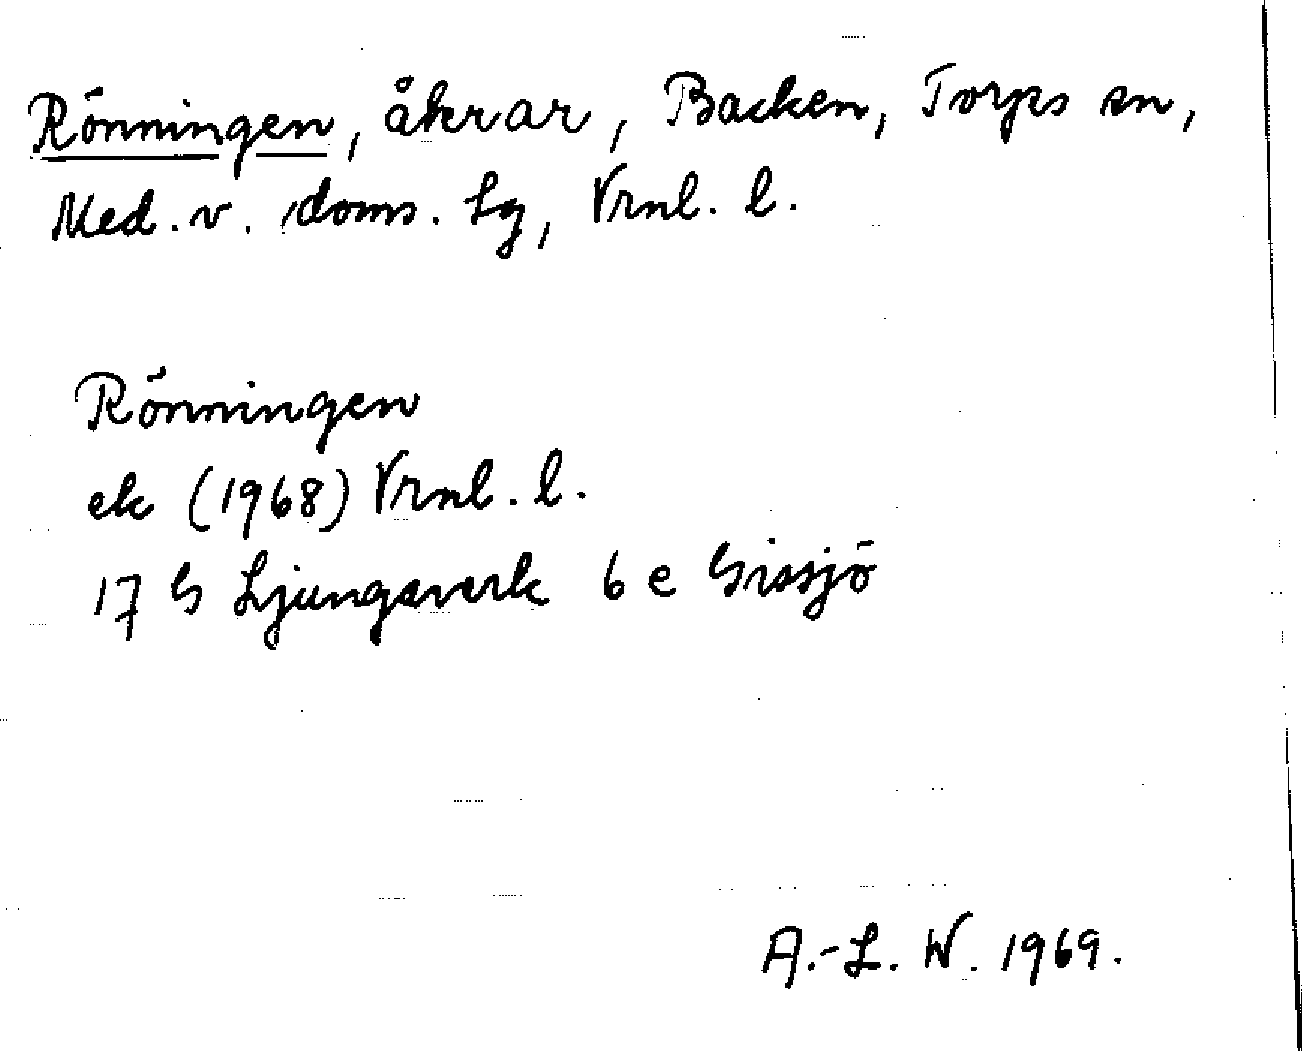 Rönningen, åkrar, Backen, Torps sn,
Med. v. doms. lg, Vrnl. l.
Rönningen
ek (1968) Vrnl. l.
17 G Ljungaverk 6 e Gissjö
A.-L. W. 1969.